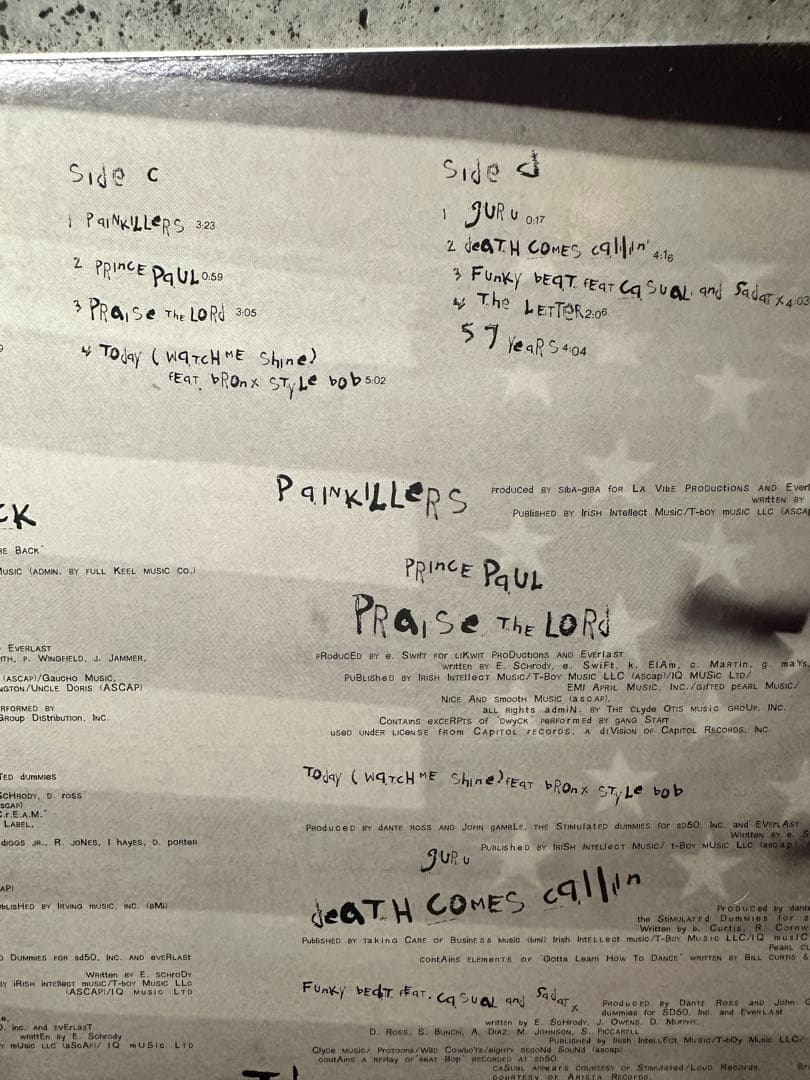 Side c
1 PAINKILLERS 3:23
2 PRINCE PAUL 0:59
3 PRAISE THE LORD 3:05
4 TODAY (WATCH ME SHINE)
FEAT. BRONX STYLE BOB 5:02
Side d
1 GURU 0:17
2 DEATH COMES CALLIN' 4:16
3 FUNKY BEAT FEAT CASUAL AND SADAT X 4:03
4 THE LETTER 2:06
5 7 YEARS 4:04
CK
RE BACK"
MUSIC (ADMIN. BY FULL KEEL MUSIC CO.)
EVERLAST
ITH, P. WINGFIELD, J. JAMMER,
(ASCAP)/GAUCHO MUSIC,
NGTON/UNCLE DORIS (ASCAP)
RFORMED BY
GROUP DISTRIBUTION, INC.
TED DUMMIES
SCHRODY, D. ROSS
SCAP)
C.R.E.A.M."
LABEL,
DIGGS JR., R. JONES, I HAYES, D. PORTER
AP)
BLISHED BY IRVING MUSIC, INC. (BMI)
D DUMMIES FOR SD50, INC. AND EVERLAST
WRITTEN BY E. SCHRODY
BY IRISH INTELLECT MUSIC/T-BOY MUSIC LLC
(ASCAP)/IQ MUSIC LTD
INC. AND EVERLAST
WRITTEN BY E. SCHRODY
Y MUSIC LLC (ASCAP)/ IQ MUSIC LTD
PAINKILLERS
PRODUCED BY SIBA-GIBA FOR LA VIBE PRODUCTIONS AND EVERL
WRITTEN BY
PUBLISHED BY IRISH INTELLECT MUSIC/T-BOY MUSIC LLC (ASCAP
PRINCE PAUL
PRAISE THE LORD
PRODUCED BY E. SWIFT FOR LIKWIT PRODUCTIONS AND EVERLAST
WRITTEN BY E. SCHRODY, E. SWIFT, K. ELAM, C. MARTIN, G MAYS,
PUBLISHED BY IRISH INTELLECT MUSIC/T-BOY MUSIC LLC (ASCAP)/IQ MUSIC LTD/
EMI APRIL MUSIC, INC./GIFTED PEARL MUSIC/
NICE AND SMOOTH MUSIC (ASCAP).
ALL RIGHTS ADMIN. BY THE CLYDE OTIS MUSIC GROUP, INC.
CONTAINS EXCERPTS OF "DWYCK" PERFORMED BY GANG STARR
USED UNDER LICENSE FROM CAPITOL RECORDS, A DIVISION OF CAPITOL RECORDS, INC.
TODAY (WATCH ME SHINE) FEAT BRONX STYLE BOB
PRODUCED BY DANTE ROSS AND JOHN GAMBLE, THE STIMULATED DUMMIES FOR SD50, INC. AND EVERLAST
WRITTEN BY E. S
PUBLISHED BY IRISH INTELLECT MUSIC/ T-BOY MUSIC LLC (ASCAP)
GURU
DEATH COMES CALLIN
PRODUCED BY DANTE
THE STIMULATED DUMMIES FOR S
WRITTEN BY B. CURTIS, R. CORNW
PUBLISHED BY TAKING CARE OF BUSINESS MUSIC (BMI) IRISH INTELLECT MUSIC/T-BOY MUSIC LLC/IQ MUSIC
PEARL CL
CONTAINS ELEMENTS OF "GOTTA LEARN HOW TO DANCE" WRITTEN BY BILL CURTIS &
FUNKY BEAT FEAT. CASUAL AND SADAT X
PRODUCED BY DANTE ROSS AND JOHN G
DUMMIES FOR SD50, INC. AND EVERLAST
WRITTEN BY E. SCHRODY, J. OWENS, D. MURPHY,
D. ROSS, S. BUNCH, A. DIAZ, M. JOHNSON, S. PICCARELL
PUBLISHED BY IRISH INTELLECT MUSIC/T-BOY MUSIC LLC/
CLYDE MUSIC/ PROTOONS/WILD COWBOYS/EIGHTY SECOND SOUND (ASCAP)
CONTAINS A REPLAY OF "BEAT BOP" RECORDED AT SD50
CASUAL APPEARS COURTESY OF STIMULATED/LOUD RECORDS.
COURTESY OF ARISTA RECORDS.